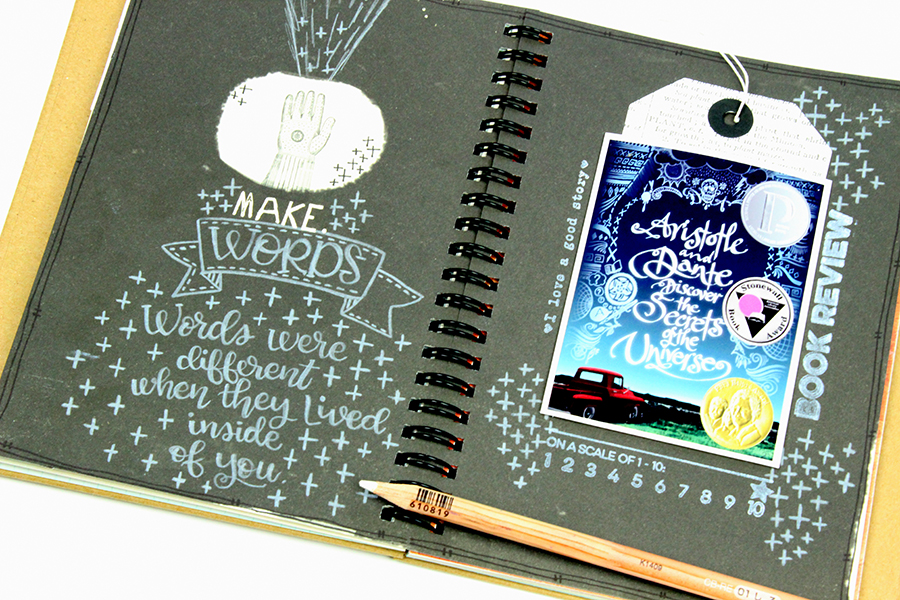 MAKE
WORDS
Words were
different
when they lived
inside
of you.
♥I love a good story♥
Aristotle
and
Dante
Discover
the
Secrets
of the
Universe
Stonewall
Book Award
BOOK REVIEW
ON A SCALE OF 1-10:
1 2 3 4 5 6 7 8 9 10
610819
K1409